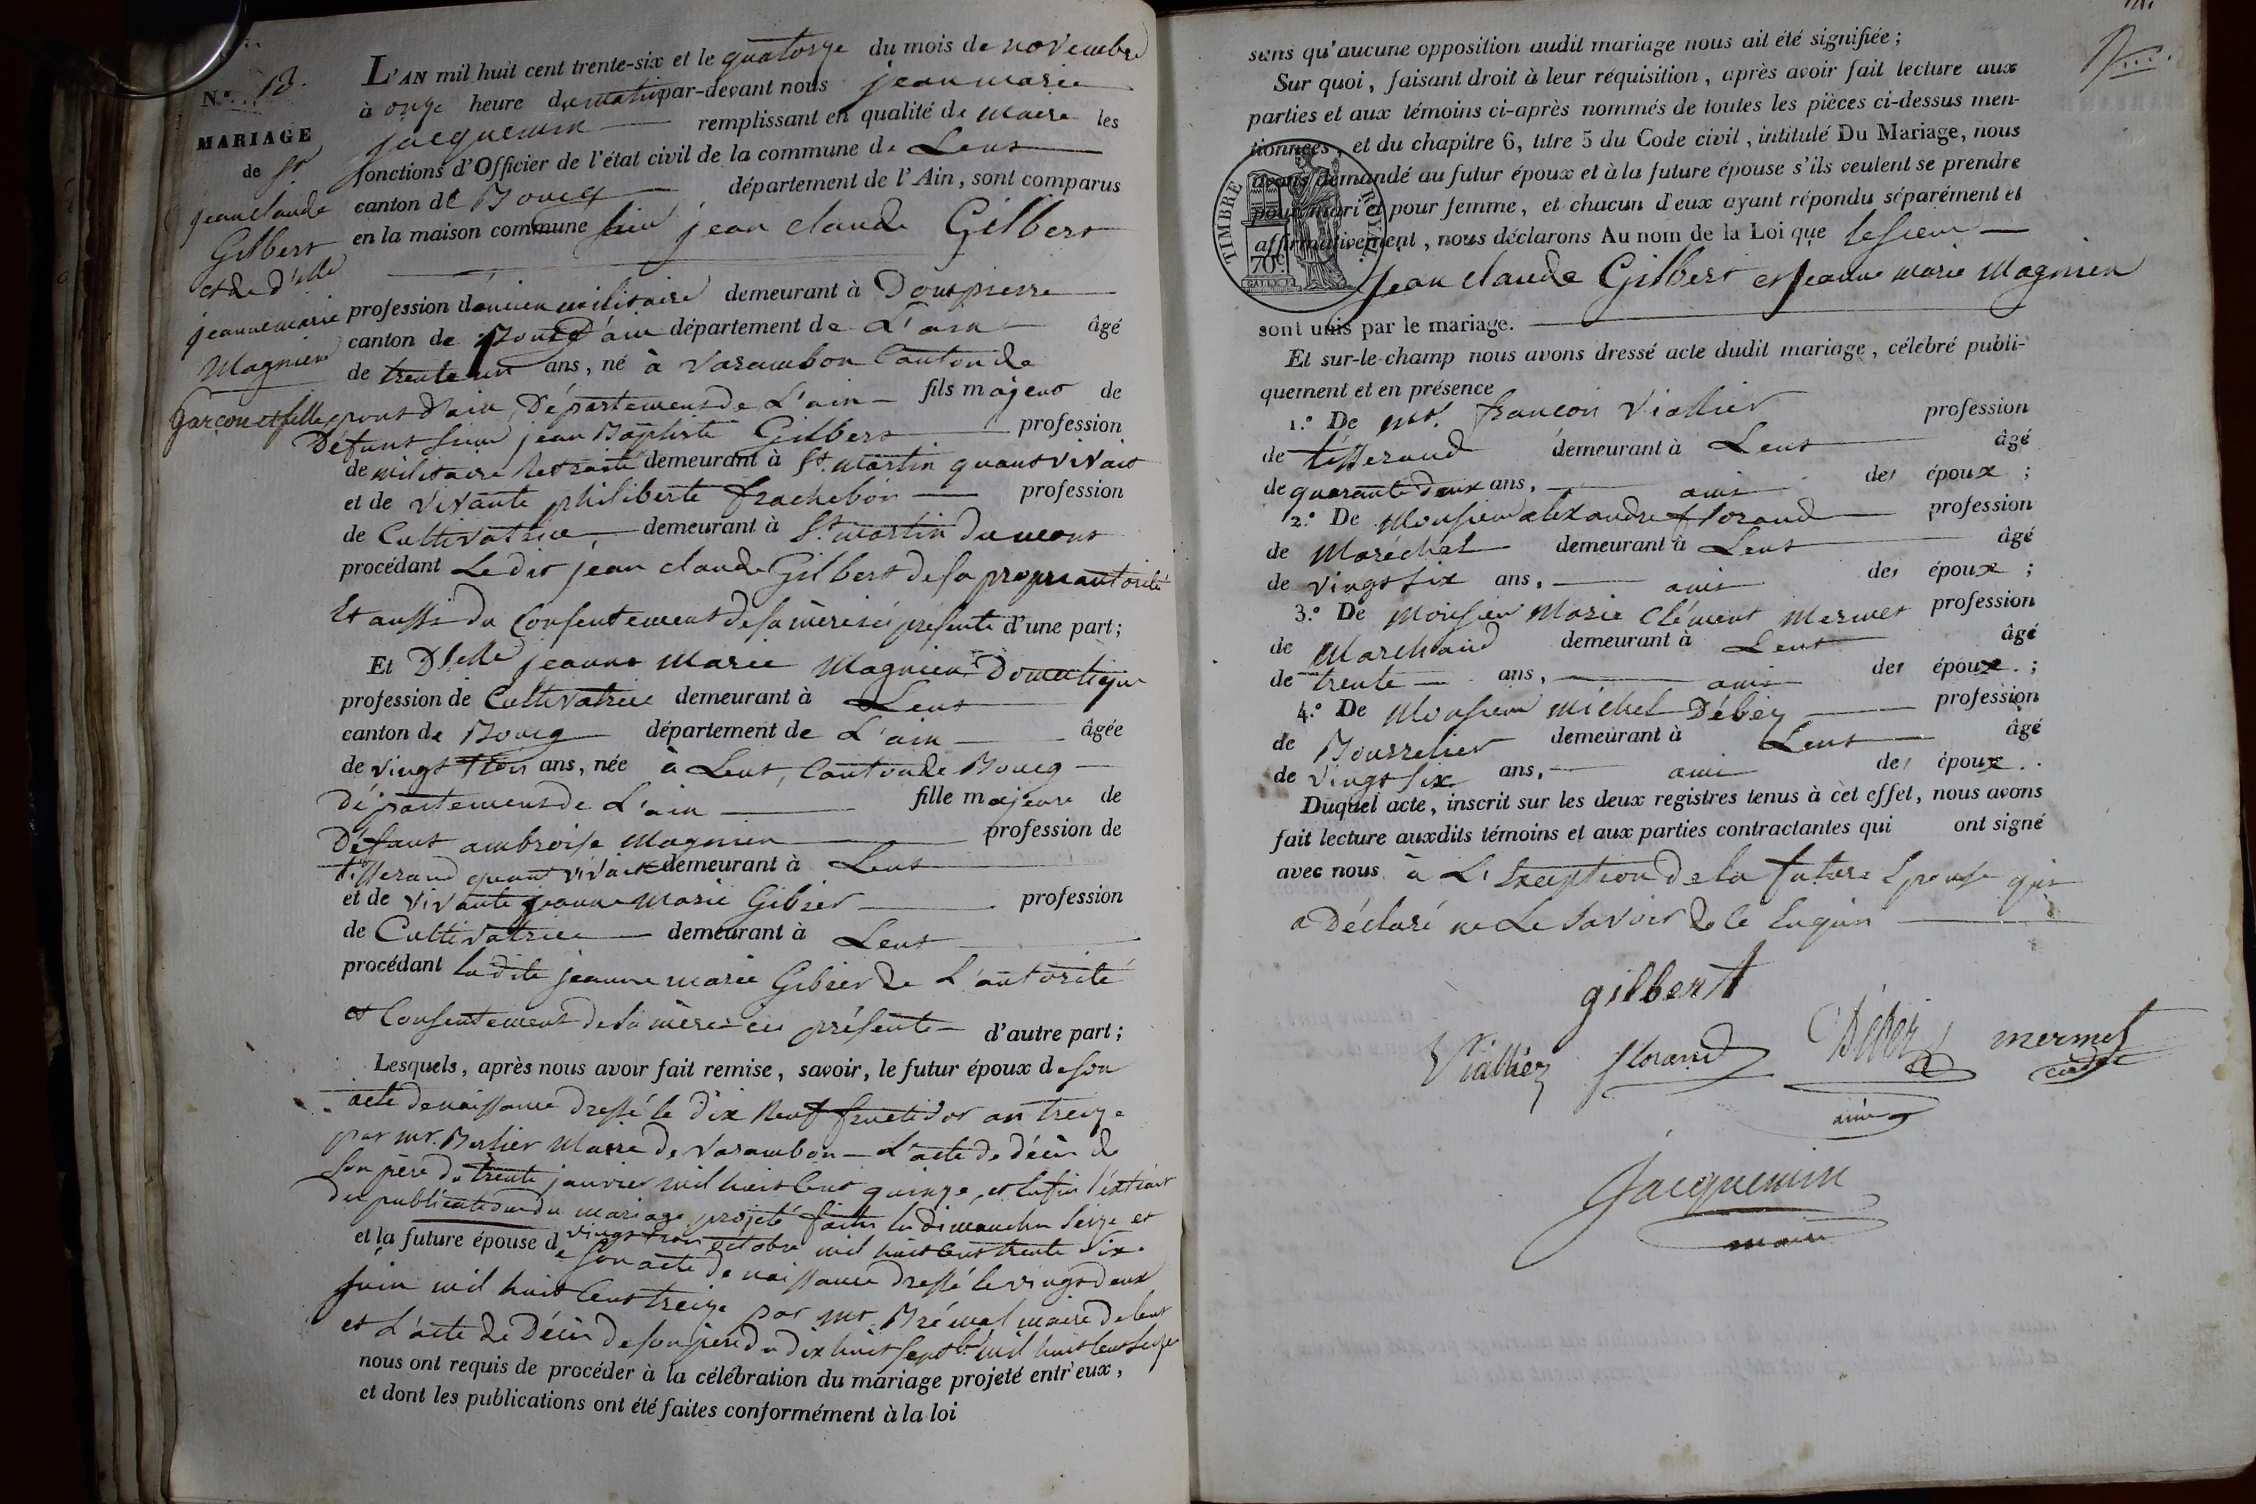 N.° 13.
MARIAGE
de Sr
jean claude
Gilbert
et de d'elle
jeanne marie
Magnien
garçon et fille
L'AN mil huit cent trente-six et le quatorze du mois de novembre
à onze heure du matin par-devant nous jean marie
jacquemin remplissant en qualité de maire les
fonctions d'Officier de l'état civil de la commune de Lent
canton de Bourg département de l'Ain, sont comparus
en la maison commune Sieur jean claude Gilbert
profession d'ancien militaire demeurant à Dompierre
canton de Pont d'ain département de L'ain âgé
de trente un ans, né à Varambon Canton de
pont d'ain, Département de L'ain fils majeur de
Défunt Sieur jean Baptiste Gilbert profession
de militaire Retraité demeurant à St. martin quant vivait
et de vivante philiberte frachebon profession
de Cultivatrice, demeurant à St. martin du mont
procédant Le dit jean claude Gilbert de sa propre autorité
Et aussi du Consentement de sa mère ici présente d'une part;
Et Dlelle jeanne Marie Magnien Domestique
profession de Cultivatrice demeurant à Lent
canton de Bourg département de L'ain âgée
de vingt trois ans, née à Lent, Canton de Bourg
Département de L'ain fille majeure de
Défunt ambroise Magnien profession de
tisserand quant vivait demeurant à Lent
et de vivante jeanne Marie Gibier profession
de Cultivatrice demeurant à Lent
procédant La dite jeanne marie Gibier de L'autorité
et Consentement de sa mère ici présente d'autre part;
Lesquels, après nous avoir fait remise, savoir, le futur époux de son
acte de naissance dressé le dix Neuf fructidor an treize
par mr. Berlier Maire de Varambon – L'acte de décès de
son père du trente janvier mil huit Cent quinze, et Enfin l'extrait
des publications du mariage projeté faites les dimanches Seize et
vingt trois octobre mil huit Cent trente Six.
et la future épouse de son acte de naissance dressé le vingt deux
juin mil huit Cent treize par mr. Brémal maire de lent
et L'acte de Décès de son père du dix huit Septbr. mil huit Cent Seize
nous ont requis de procéder à la célébration du mariage projeté entr'eux,
et dont les publications ont été faites conformément à la loi
sans qu'aucune opposition audit mariage nous ait été signifiée;
Sur quoi, faisant droit à leur réquisition, après avoir fait lecture aux
parties et aux témoins ci-après nommés de toutes les pièces ci-dessus men-
tionnées, et du chapitre 6, titre 5 du Code civil, intitulé Du Mariage, nous
avons demandé au futur époux et à la future épouse s'ils veulent se prendre
pour mari et pour femme, et chacun d'eux ayant répondu séparément et
affirmativement, nous déclarons Au nom de la Loi que le Sieur
Jean claude Gilbert et Jeanne marie Magnien
sont unis par le mariage.
TIMBRE ROYAL
70c
Et sur-le-champ nous avons dressé acte dudit mariage, célébré publi-
quement et en présence
1.° De Mr. françois Viallier profession
de tisserand demeurant à Lent âgé
de quarante deux ans, ami des époux;
2.° De Monsieur alexandre florand profession
de Maréchal demeurant à Lent âgé
de vingt six ans, ami des époux;
3.° De Monsieur Marie Clément Mermet profession
de Marchand demeurant à Lent âgé
de trente ans, ami des époux;
4.° De Monsieur Michel Débey profession
de Bourrelier demeurant à Lent âgé
de vingt six ans, ami des époux.
Duquel acte, inscrit sur les deux registres tenus à cet effet, nous avons
fait lecture auxdits témoins et aux parties contractantes qui ont signé
avec nous à L'Exception de la future Epouse qui
a Déclaré ne Le savoir de ce Enquis
gilbert
Viallier florand Débey mermet
cadet
ainé
Jacquemin
maire